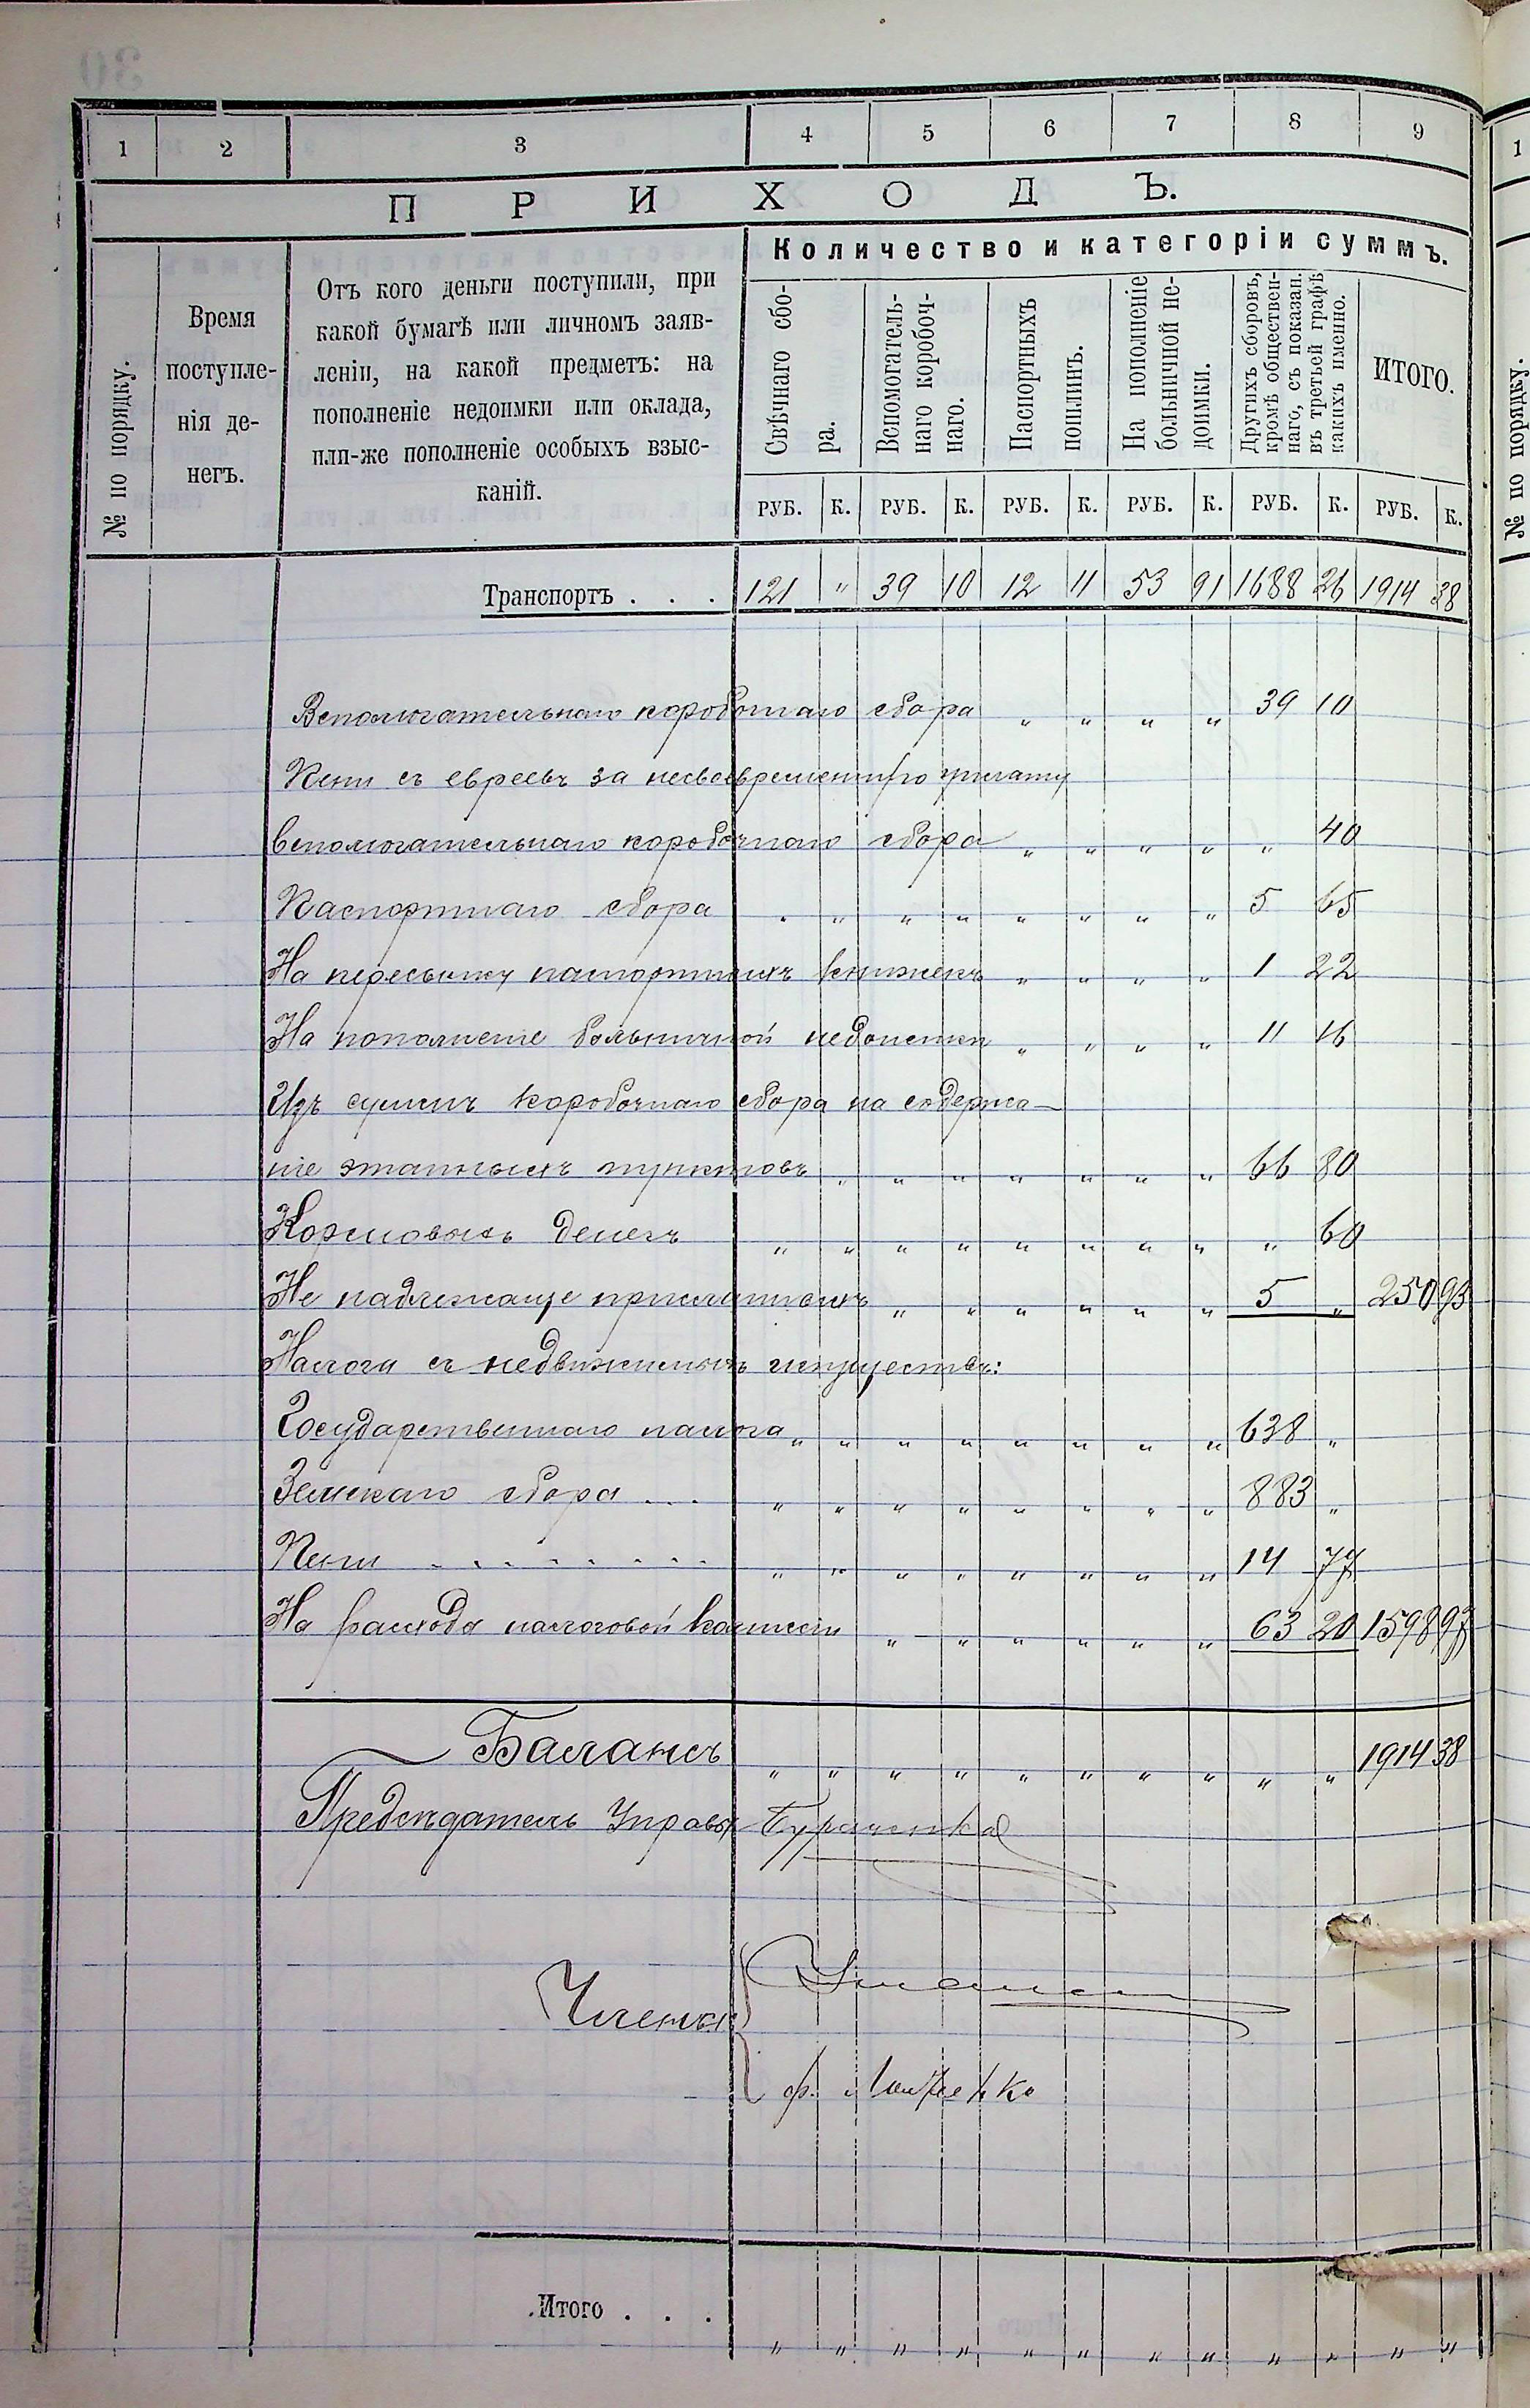 1 2 3 4 5 6 7 8 9
ПРИХОДЪ.
№ по порядку.
Время
поступле-
нія де-
негъ.
Отъ кого деньги поступили, при
какой бумагѣ или личномъ заяв-
леніи, на какой предметъ: на
пополненіе недоимки или оклада,
или-же пополненіе особыхъ взыс-
каній.
Количество и категоріи суммъ.
Свѣчнаго сбо-
ра.
Вспомогатель-
наго коробоч-
наго.
Паспортныхъ
пошлинъ.
На пополненіе
больничной не-
доимки.
Другихъ сборовъ,
кромѣ обществен-
наго, съ показан.
въ третьей графѣ
какихъ именно.
ИТОГО.
РУБ. К. РУБ. К. РУБ. К. РУБ. К. РУБ. К. РУБ. К.
Транспортъ . . . 121 " 39 10 12 11 53 91 1688 26 1914 38
Вспомогательнаго коробочнаго сбора " " " " 39 10
Пени съ евреевъ за несвоевременную уплату
вспомогательнаго коробочнаго сбора " " " " " 40
Паспортнаго сбора " " " " " " " " 5 65
На пересылку паспортныхъ книжекъ " " " " 1 22
На пополненіе больничной недоимки " " " " 11 16
Изъ суммъ коробочнаго сбора на содержа-
ніе этапныхъ пунктовъ " " " " " " " 66 80
Кормовыхъ денегъ " " " " " " " " " 60
Не надлежаще присланныхъ " " " " " " 5 " 250 93
Налога съ недвижимыхъ имуществъ:
Государственнаго налога " " " " " " " " 638 "
Земскаго сбора ... " " " " " " " " 883 "
Пени . . . . . . . . " " " " " " " " 14 77
На расходы налоговой комиссіи " " " " " " 63 20 1598 97
Балансъ " " " " " " " " " " 1914 38
Предсѣдатель Управы
Члены
ф.
Итого . . . " " " " " " " " " " " "
1
№ по порядку.